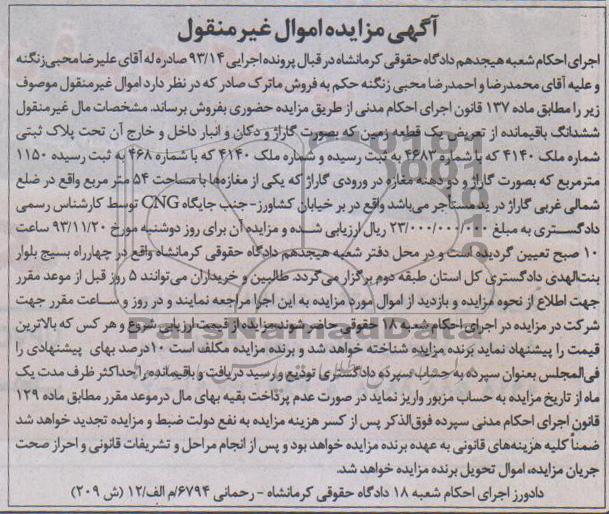 آگهی مزایده اموال غیر منقول
اجرای احکام شعبه هیجدهم دادگاه حقوقی کرمانشاه در قبال پرونده اجرایی ۹۳/۱۴ صادره له آقای علیرضا محبی زنگنه
و علیه آقای محمدرضا و احمدرضا محبی زنگنه حکم به فروش ماترک صادر که در نظر دارد اموال غیر منقول موصوف
زیر را مطابق ماده ۱۳۷ قانون اجرای احکام مدنی از طریق مزایده حضوری بفروش برساند. مشخصات مال غیر منقول
ششدانگ باقیمانده از تعریض یک قطعه زمین که بصورت گاراژ و دکان و انبار داخل و خارج آن تحت پلاک ثبتی
شماره ملک ۴۱۴۰ که با شماره ۴۶۸۳ به ثبت رسیده و شماره ملک ۴۱۴۰ که با شماره ۴۶۸ به ثبت رسیده ۱۱۵۰
مترمربع که بصورت گاراژ و دو دهنه مغازه در ورودی گاراژ که یکی از مغازه‌ها با مساحت ۵۴ متر مربع واقع در ضلع
شمالی غربی گاراژ در ید مستأجر می‌باشد واقع در بر خیابان کشاورز- جنب جایگاه CNG توسط کارشناس رسمی
دادگستری به مبلغ ۲۳/۰۰۰/۰۰۰/۰۰۰ ریال ارزیابی شده و مزایده آن برای روز دوشنبه مورخ ۹۳/۱۱/۲۰ ساعت
۱۰ صبح تعیین گردیده است و در محل دفتر شعبه هیجدهم دادگاه حقوقی کرمانشاه واقع در چهارراه بسیج بلوار
بنت‌الهدی دادگستری کل استان طبقه دوم برگزار می‌گردد. طالبین و خریداران می‌توانند ۵ روز قبل از موعد مقرر
جهت اطلاع از نحوه مزایده و بازدید از اموال مورد مزایده به این اجرا مراجعه نمایند و در روز و ساعت مقرر جهت
شرکت در مزایده در اجرای احکام شعبه ۱۸ حقوقی حاضر شوند مزایده از قیمت ارزیابی شروع و هر کس که بالاترین
قیمت را پیشنهاد نماید برنده مزایده شناخته خواهد شد و برنده مزایده مکلف است ۱۰درصد بهای پیشنهادی را
فی‌المجلس بعنوان سپرده به حساب سپرده دادگستری تودیع و رسید دریافت و باقیمانده را حداکثر ظرف مدت یک
ماه از تاریخ مزایده به حساب مزبور واریز نماید در صورت عدم پرداخت بقیه بهای مال در موعد مقرر مطابق ماده ۱۲۹
قانون اجرای احکام مدنی سپرده فوق‌الذکر پس از کسر هزینه مزایده به نفع دولت ضبط و مزایده تجدید خواهد شد
ضمناً کلیه هزینه‌های قانونی به عهده برنده مزایده خواهد بود و پس از انجام مراحل و تشریفات قانونی و احراز صحت
جریان مزایده، اموال تحویل برنده مزایده خواهد شد.
دادورز اجرای احکام شعبه ۱۸ دادگاه حقوقی کرمانشاه - رحمانی ۶۷۹۴/م الف/۱۲ (ش ۲۰۹)
ParsNamadData